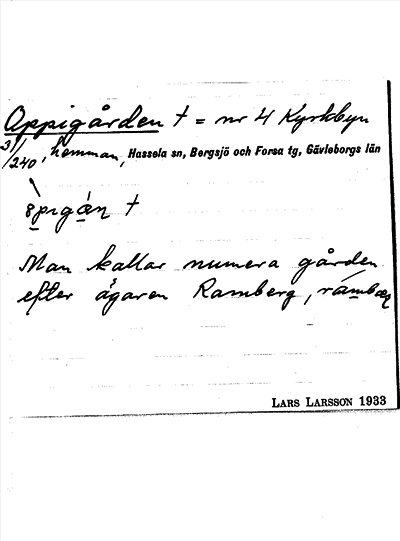 Oppigården † = nr 4 Kyrkbyn
31/240, hemman, Hassela sn, Bergsjö och Forsa tg, Gävleborgs län
†
Man kallar numera gården
efter ägaren Ramberg,
LARS LARSSON 1933